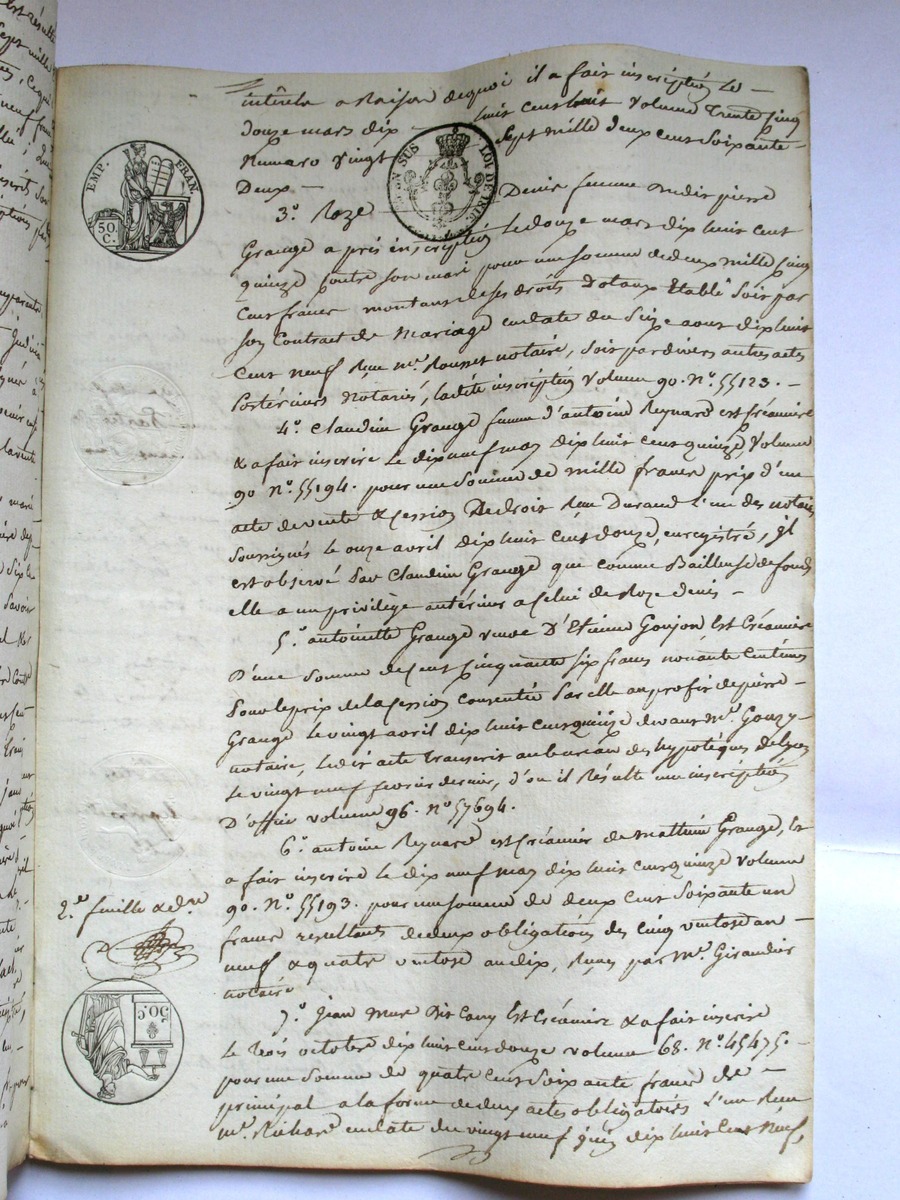 intérêts a Raison dequoi il a fait inscription le
douze mars dix huit cent huit volume Trente cinq
Numero vingt sept mille deux cent Soixante
Deux
EMP. FRAN.
50. C.
SUS LOI DE
3.º Roze Denis femme dudit pierre
Grange a pris inscription le douze mars dix huit cent
quinze contre son mari pour une somme de deux mille cinq
cent francs montant de ses droits Dotaux Etablis Soit par
son Contract de Mariage endate du Seize aout dix huit
Cent neuf Reçu mᵉ. Rousset notaire, soit par divers autres actes
Postérieurs Notariés, ladite inscription volume 90. Nº. 55123.
4.º Claudine Grange femme d'antoine Reynard est créancière
& a fait inscrire le dix neuf mai dix huit cent quinze Volume
90 Nº. 55194. pour une Somme de mille francs prix d'un
acte de vente & cession De droit Reçu Durand L'un des notaires
Soussignés le onze avril dix huit Cent douze, enregistré, il
est observé Par Claudine Grange que comme Bailleuse de fonds
elle a un privilège antérieur a Celui de Roze Denis
5.º antoinette Grange veuve D'Etienne Goujon Est Créancière
D'une Somme de cent cinquante six francs novante Centimes
Pour le prix de la cession consentie Par elle au profit de pierre
Grange le vingt avril dix huit cent quinze devant mᵉ. Gonzy
notaire, ledit acte transcrit au bureau des hypotèques de Lyon
Le vingt neuf fevrier dernier, d'où il Résulte une inscription
D'office volume 96. Nº 57694.
6.º antoine Reynard est Créancier de Mathieu Grange, Et
a fait inscrire le dix neuf mai dix huit cent quinze volume
90. Nº. 55193. pour une somme de deux cent Soixante un
francs resultants de deux obligations des cinq ventose an
neuf & quatre ventose an dix, Reçues par mᵉ. Giraudier
notaire
2.ᵉ feuille & dᵉʳᵉ
50 C.
7.º Jean Mure dit Cany Est Créancier & a fait inscrire
Le Trois octobre dix huit cent douze volume 68. Nº. 45475.
pour une somme de quatre cent soixante francs de
principal a la forme de deux actes obligatoires L'un Reçu
mᵉ. Richard endate du vingt neuf juin dix huit Cent Neuf,